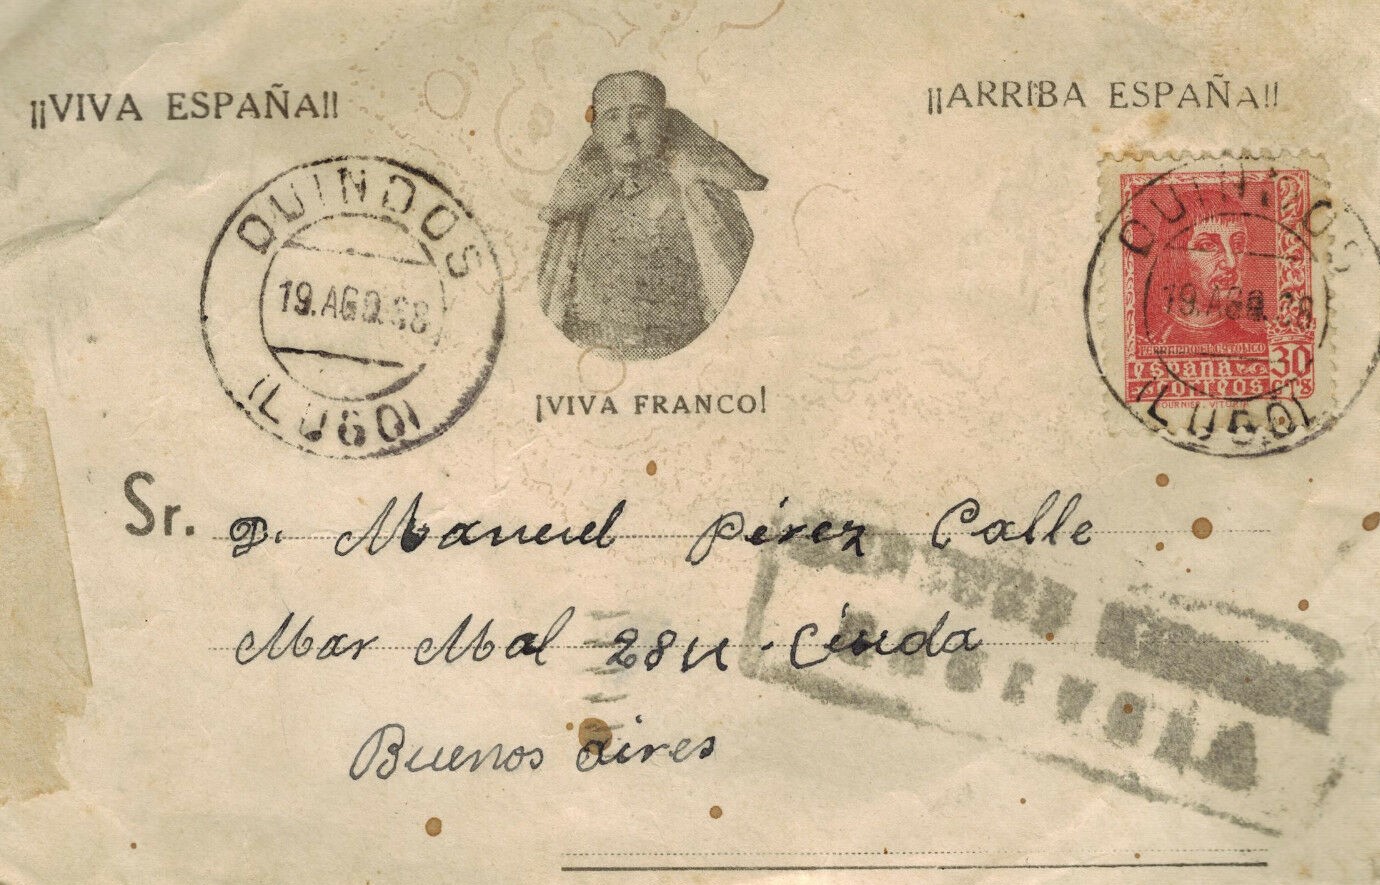 ¡¡VIVA ESPAÑA!!
¡¡ARRIBA ESPAÑA!!
QUINDOS
19.AGO.38
(LUGO)
QUINDOS
19.AGO.38
(LUGO)
FERNANDO EL CATOLICO
españa
correos
30
CTS
FOURNIER. VITORIA
¡VIVA FRANCO!
Sr. D. Manuel Pérez Calle
Mar Mal
Buenos aires